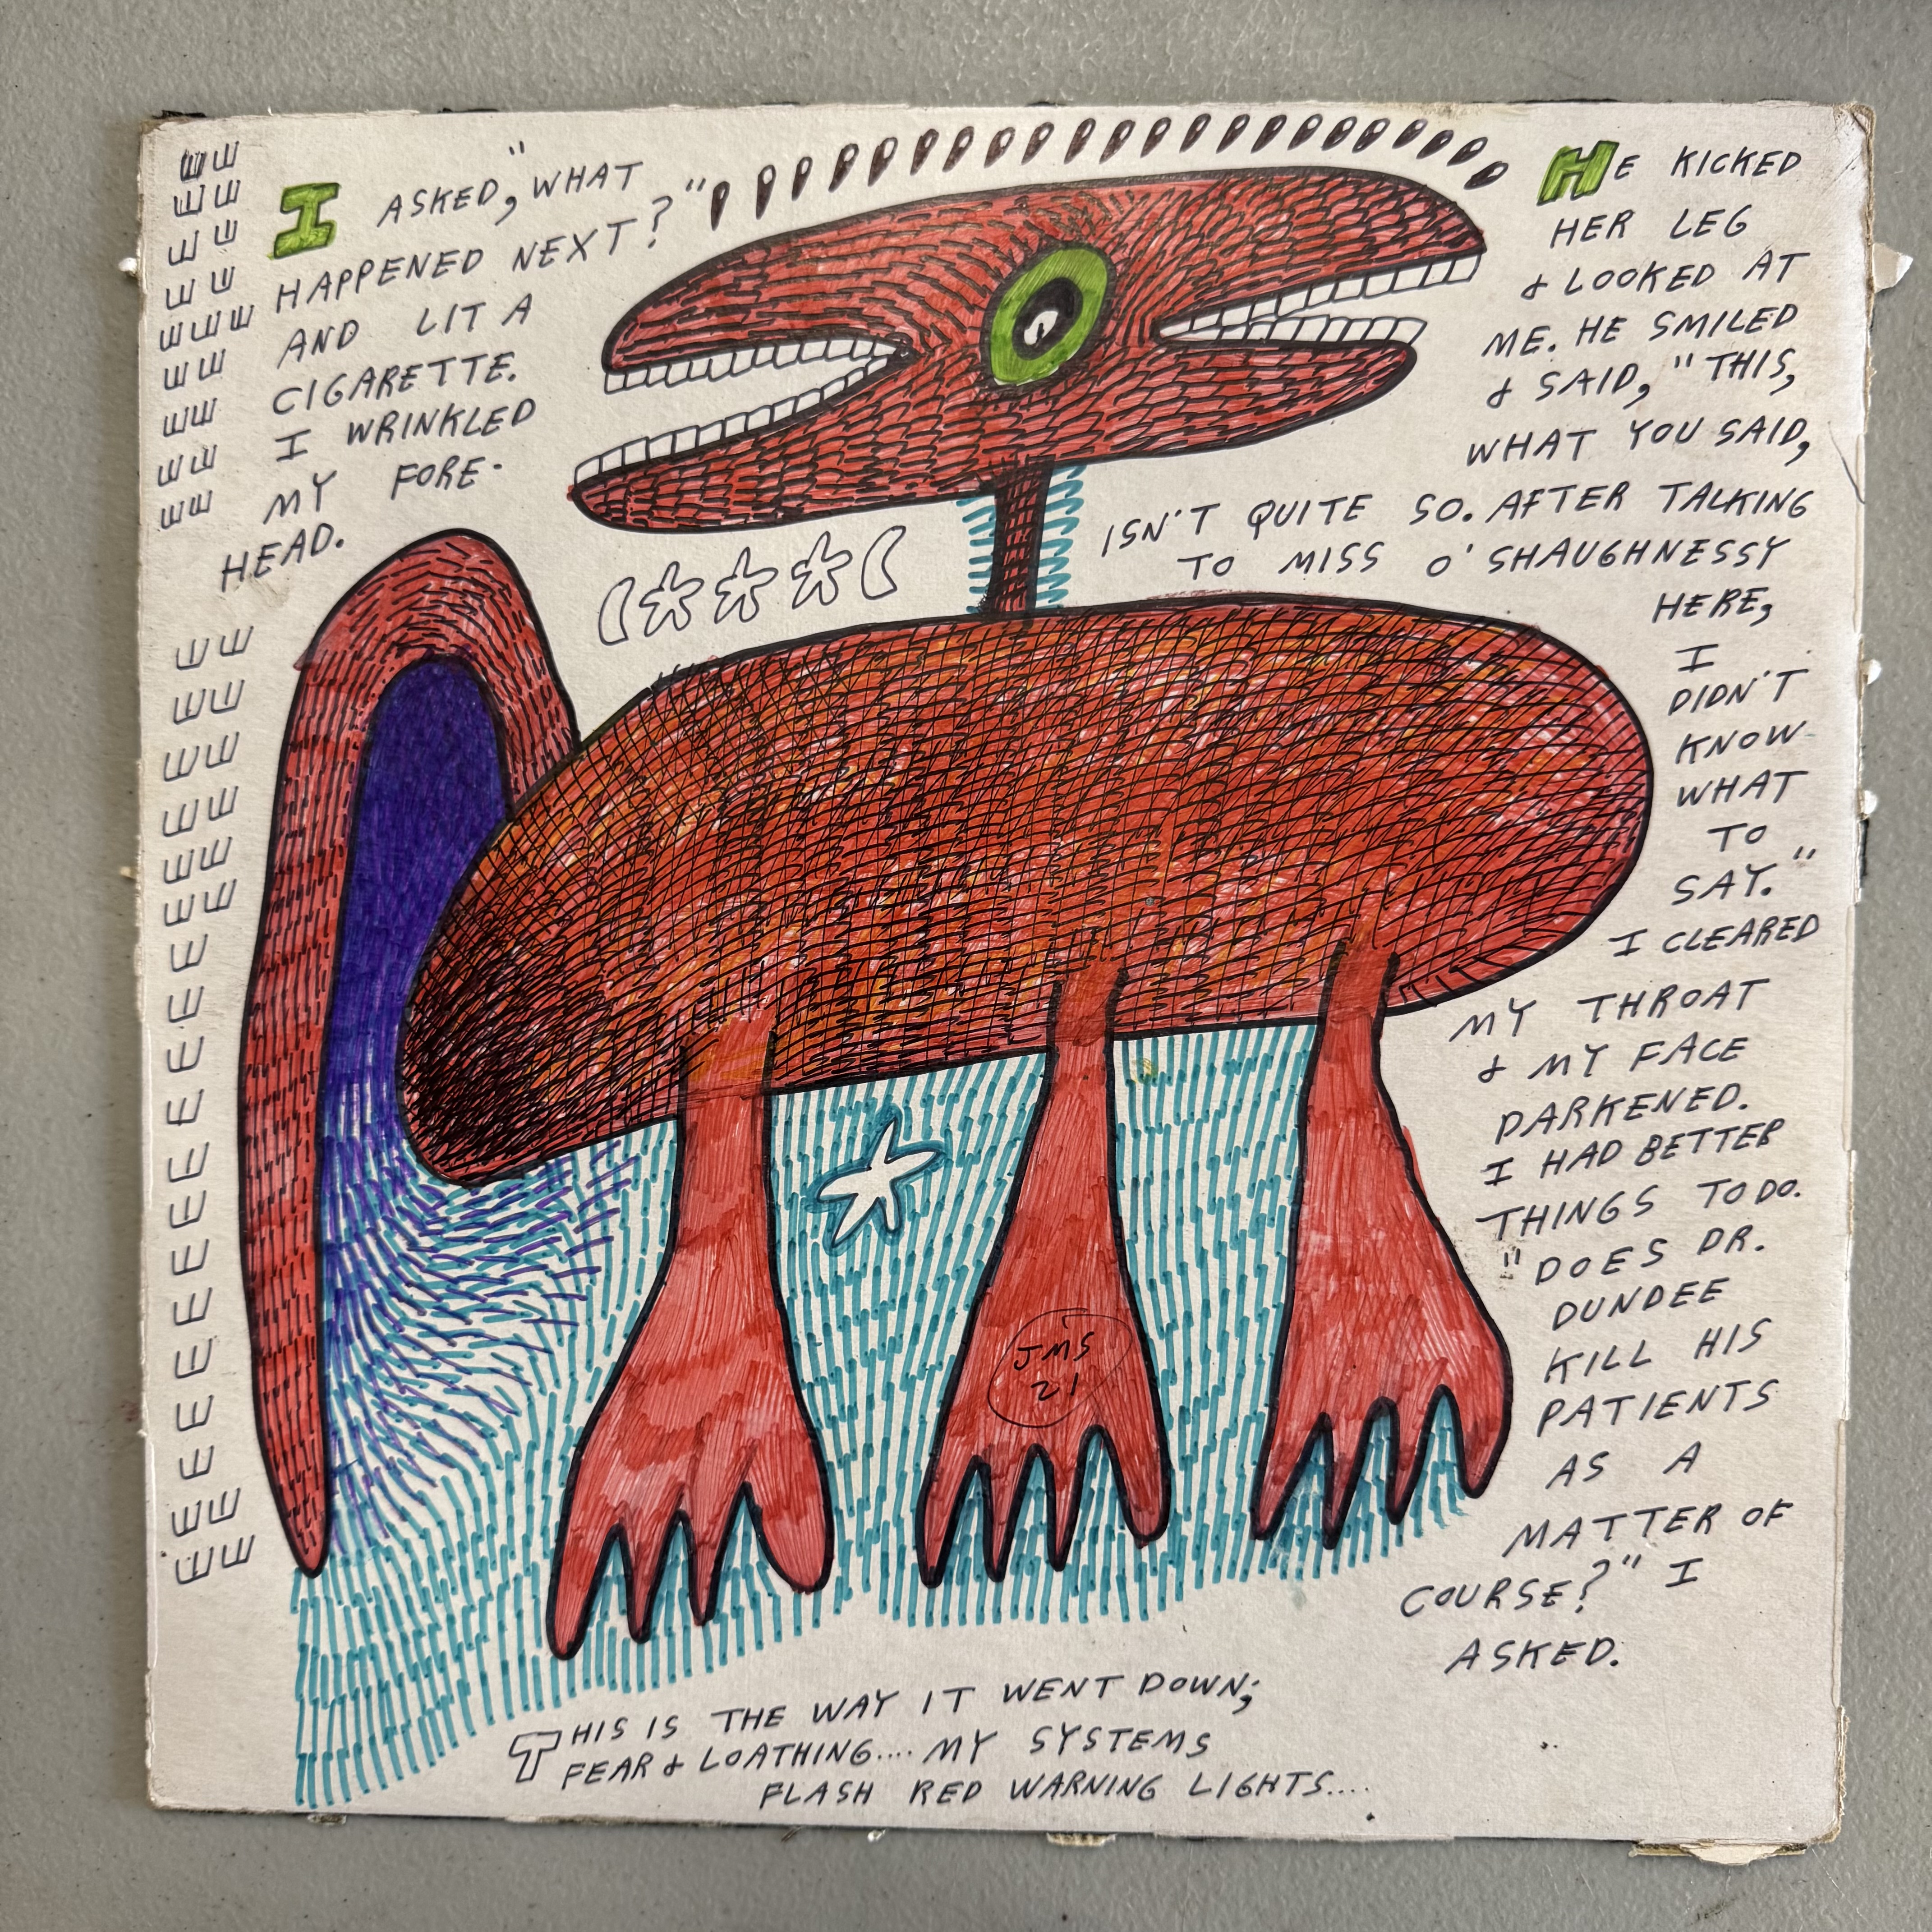 I ASKED, "WHAT
HAPPENED NEXT?"
AND LIT A
CIGARETTE.
I WRINKLED
MY FORE-
HEAD.
HE KICKED
HER LEG
& LOOKED AT
ME. HE SMILED
& SAID, "THIS,
WHAT YOU SAID,
ISN'T QUITE SO. AFTER TALKING
TO MISS O'SHAUGHNESSY
HERE,
I
DIDN'T
KNOW
WHAT
TO
SAY."
I CLEARED
MY THROAT
& MY FACE
DARKENED.
I HAD BETTER
THINGS TO DO.
"DOES DR.
DUNDEE
KILL HIS
PATIENTS
AS A
MATTER OF
COURSE?" I
ASKED.
JMS
21
THIS IS THE WAY IT WENT DOWN;
FEAR & LOATHING.... MY SYSTEMS
FLASH RED WARNING LIGHTS....